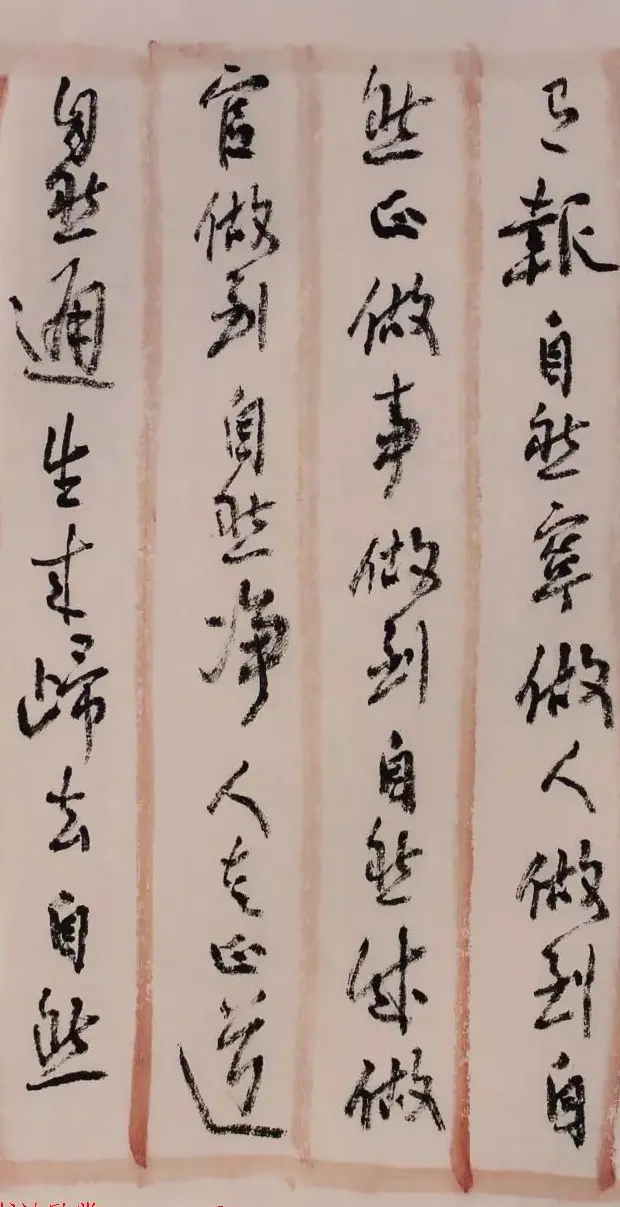 報自然寧做人做到自
然正做事做到自然成做
官做到自然净人走正道
自然通生来歸去自然